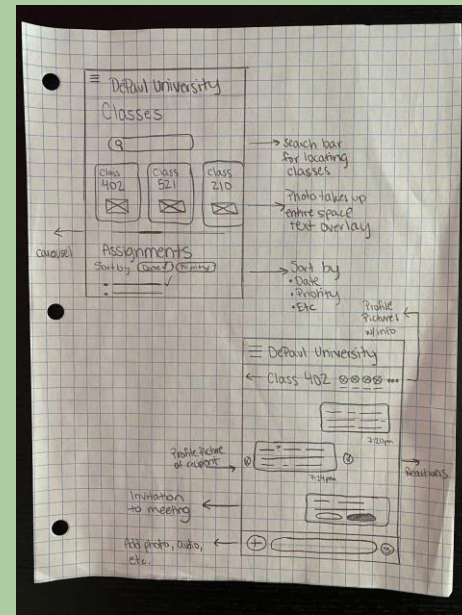 DePaul University
Classes
Class
402
Class
521
Class
210
Assignments
Sort by
carousel
search bar
for locating
classes
Photo takes up
entire space
text overlay
Sort by
• Date
• Priority
• Etc
Profile
Pictures
w/info
DePaul University
Class 402
7:20pm
7:24pm
Profile Picture
Reactions
Invitation
to meeting
Add photo, audio,
etc.